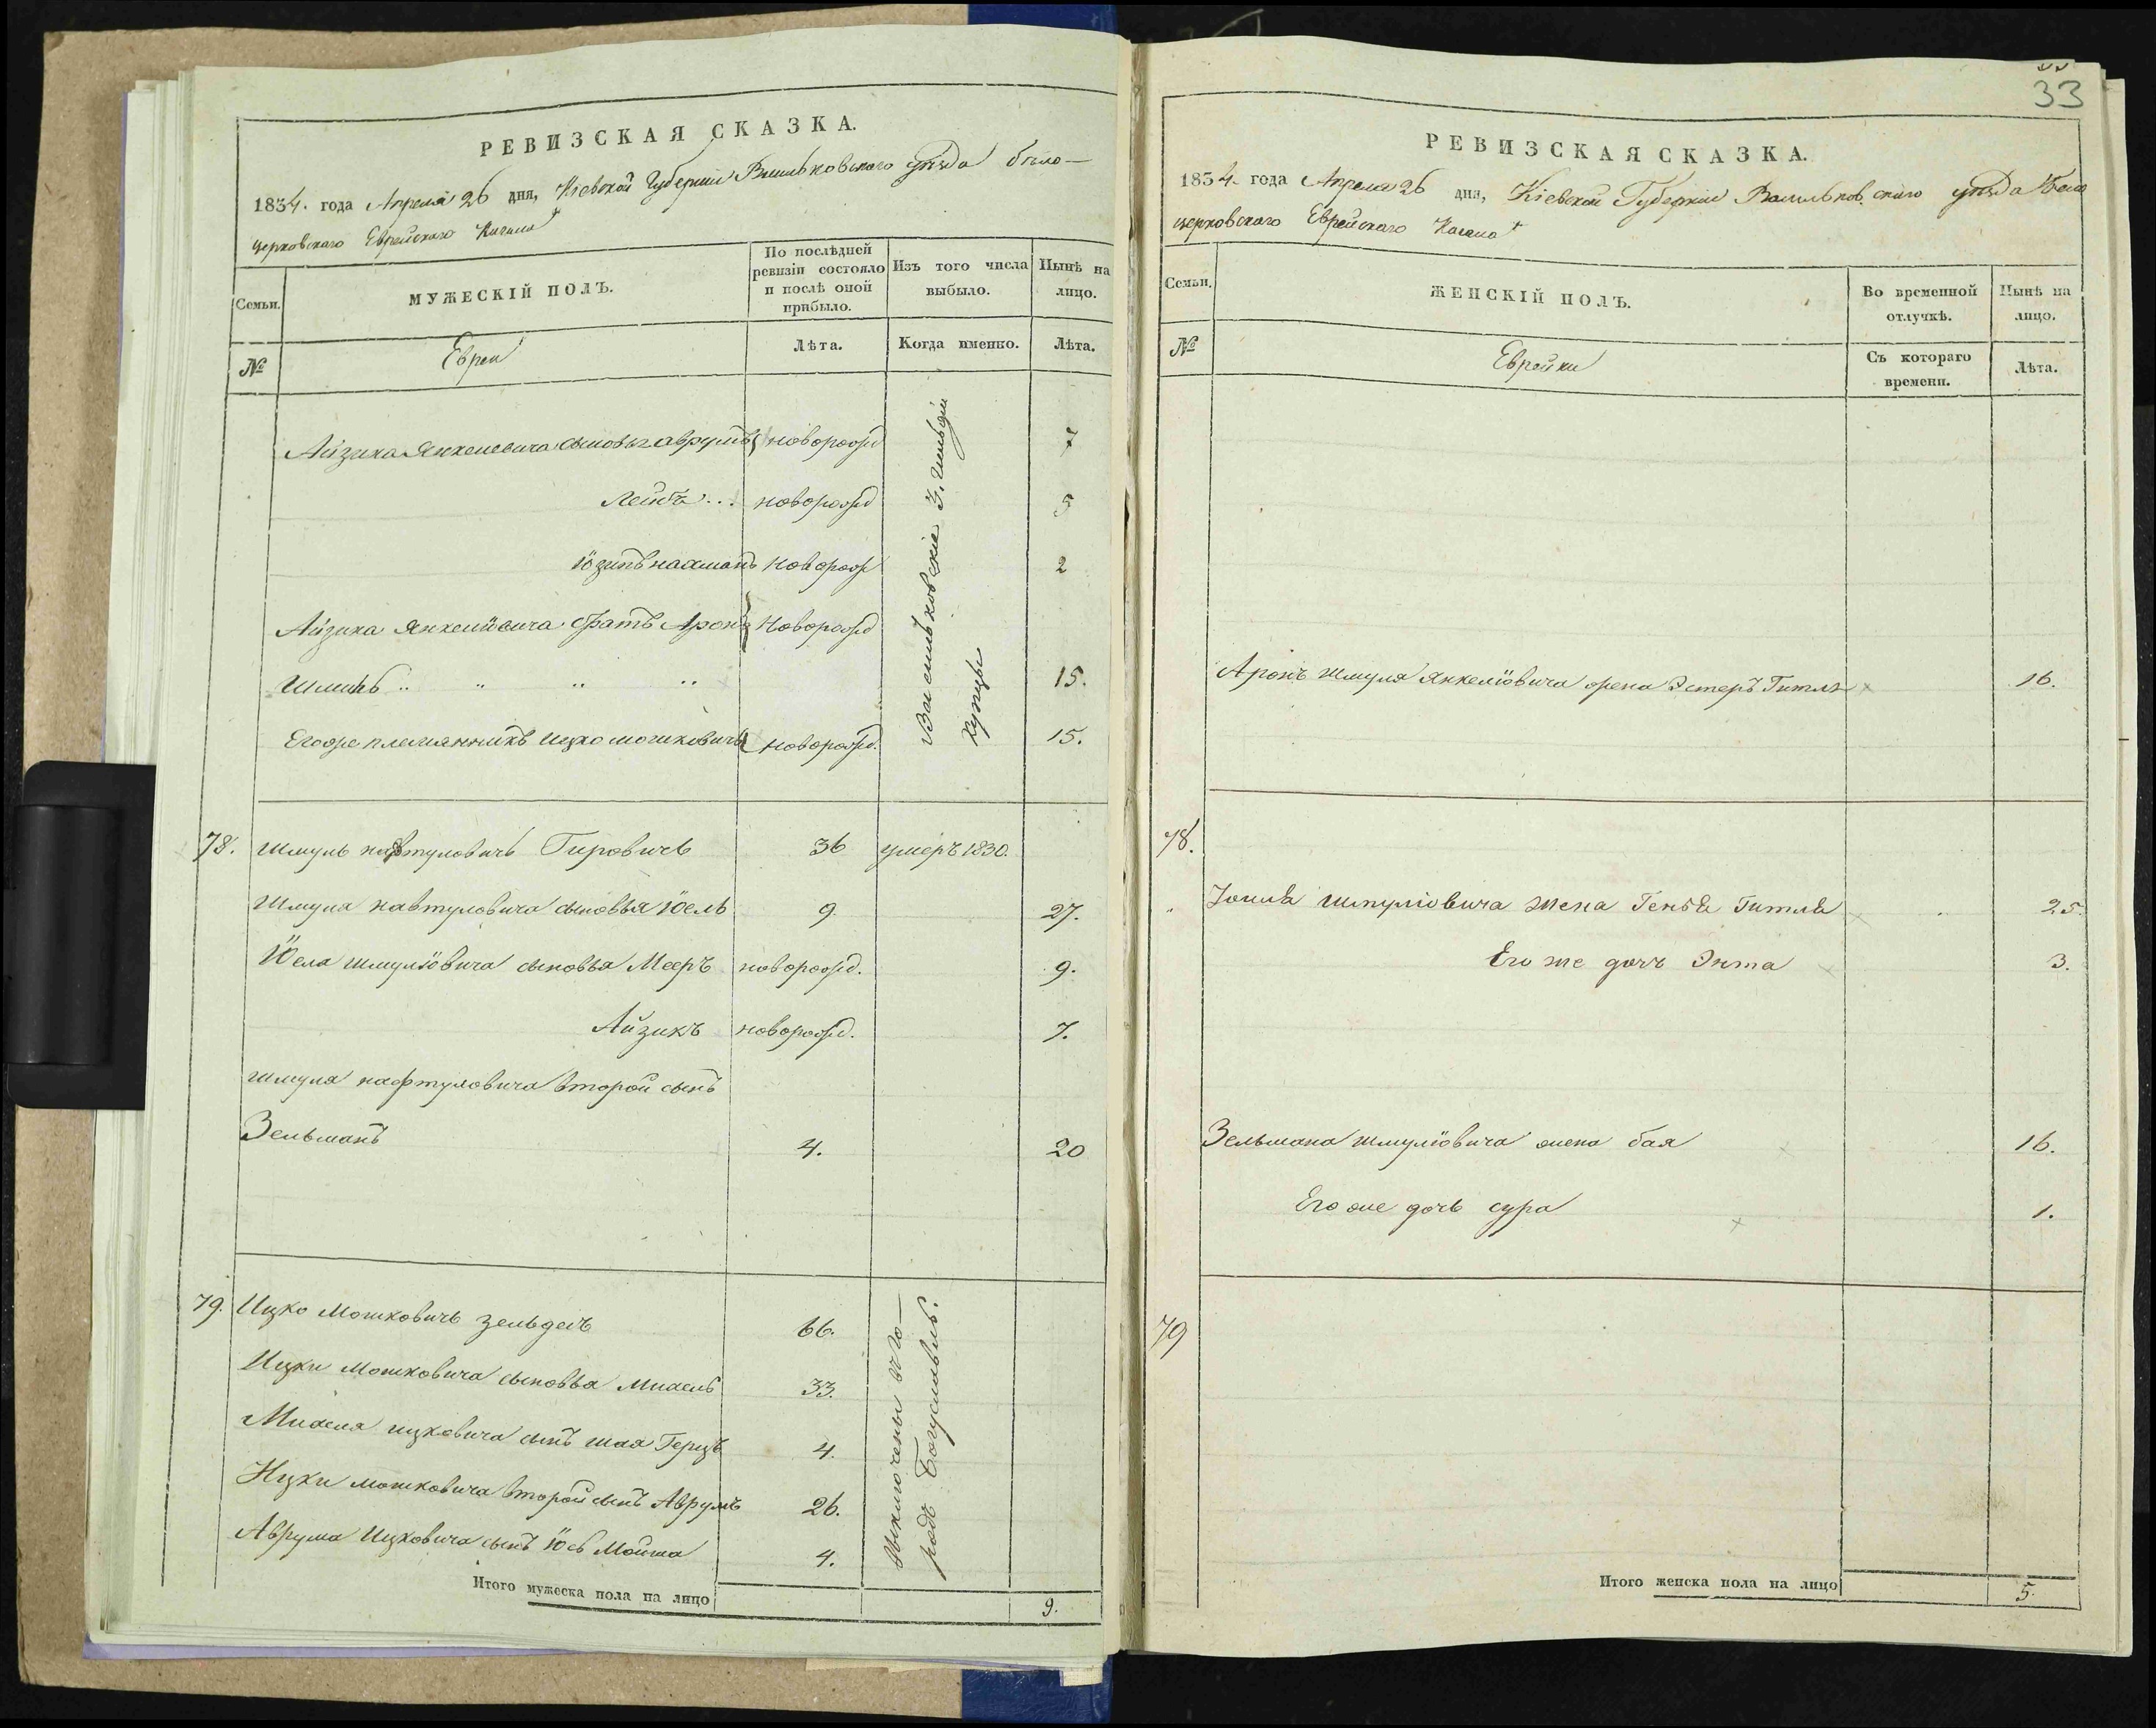 РЕВИЗСКАЯ СКАЗКА.
1834. года Апреля 26 дня, Кіевской Губерніи Васильковского уѣзда бѣло-
церковскаго Еврейскаго Кагала
Семьи.
МУЖЕСКІЙ ПОЛЪ.
По послѣдней
ревизіи состояло
и послѣ оной
прибыло.
Изъ того числа
выбыло.
Нынѣ на
лицо.
№
Евреи
Лѣта.
Когда именно.
Лѣта.
Айзика Янкелевича сыновья аврумъ новорожд 7
Лейба новорожд 5
Юзипъ нахманъ новорож 2
Айзика Янкеліовича братъ Аронъ новорожд
Шмиль 15.
Егоже племянникъ ицко мошковичъ новорожд. 15.
Васильковскіе 3. гильдіи
купцы
78. шмуль нафтуловичъ Гировичъ 36 умеръ 1830.
Шмуля навтуловича сыновья Юель 9. 27.
Юеля шмуліовича сыновья Мееръ новорожд. 9.
Айзикъ новорожд. 7.
шмуля нафтуловича второй сынъ
Зельманъ 4. 20
79. Ицко Мошковичъ зельдечъ 66.
Ицки Мошковича сыновья михель 33.
Михеля ицковича сынъ шая Герцъ 4.
Ицки мошковича второй сынъ Аврумъ 26.
Аврума Ицковича сынъ Юсь Мойша 4.
изключены по го-
роде Богуславль.
Итого мужеска пола на лицо 9.
33
РЕВИЗСКАЯ СКАЗКА.
1834. года Апреля 26 дня, Кіевской Губерніи Васильков.скаго уѣзда Бело
церковскаго Еврейскаго Кагала
Семьи.
ЖЕНСКІЙ ПОЛЪ.
Во временной
отлучкѣ.
Нынѣ на
лицо.
№
Еврейки
Съ котораго
времени.
Лѣта.
Аронъ шмуля Янкеліовича жена Эстеръ Гитля 16.
78.
Іоиля шмуліовича жена Геня Гитля 25.
Его же дочь Энта 3.
Зельмана шмуліовича жена бая 16.
Его же дочь сура 1.
79
Итого женска пола на лицо 5.